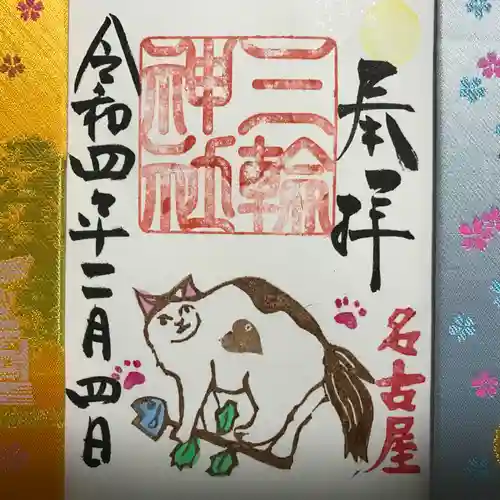 奉拝
三輪
神社
令和四年二月四日
名古屋